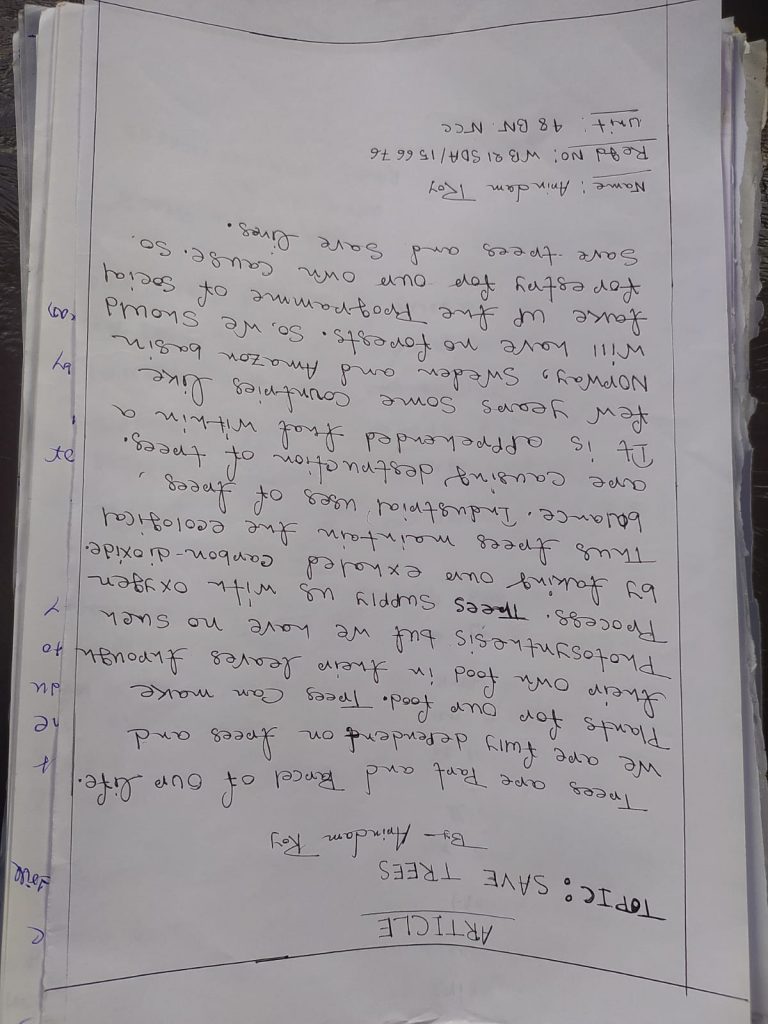 ARTICLE
TOPIC: SAVE TREES
By- Arindam Roy
Trees are Part and Parcel of our life.
We are fully dependent on trees and
Plants for our food. Trees can make
their own food in their leaves through
Photosynthesis but we have no such
Process. Trees supply us with oxygen
by taking our exhaled carbon-dioxide.
Thus trees maintain the ecological
balance. Industrial uses of trees,
are causing destruction of trees.
It is apprehended that within a
few years some countries like
Norway, Sweden and Amazon basin
will have no forests. So, we should
take up the Programme of Social
forestry for our own cause. So.
Save trees and Save lives.
Name: Arindam Roy
Regd NO: WB21SDA/156676
Unit: 48 BN NCC